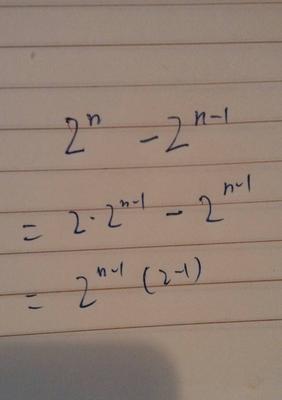 2^n - 2^{n-1}
= 2 · 2^{n-1} - 2^{n-1}
= 2^{n-1} (2-1)